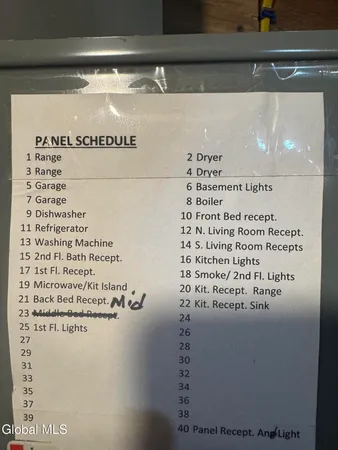 PANEL SCHEDULE
1 Range 2 Dryer
3 Range 4 Dryer
5 Garage 6 Basement Lights
7 Garage 8 Boiler
9 Dishwasher 10 Front Bed recept.
11 Refrigerator 12 N. Living Room Recept.
13 Washing Machine 14 S. Living Room Recepts
15 2nd Fl. Bath Recept. 16 Kitchen Lights
17 1st Fl. Recept. 18 Smoke/ 2nd Fl. Lights
19 Microwave/Kit Island 20 Kit. Recept. Range
21 Back Bed Recept. Mid 22 Kit. Recept. Sink
23 Middle Bed Recept. 24
25 1st Fl. Lights 26
27 28
29 30
31 32
33 34
35 36
37 38
39 40 Panel Recept. And Light
Global MLS